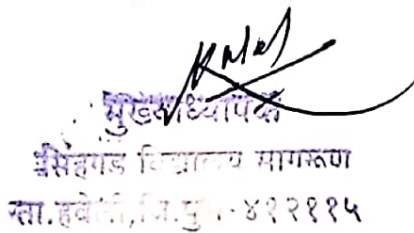 मुख्याध्यापक
सिंहगड विद्यालय मागरूण
ता.हवेली,जि.पु - ४१२११५